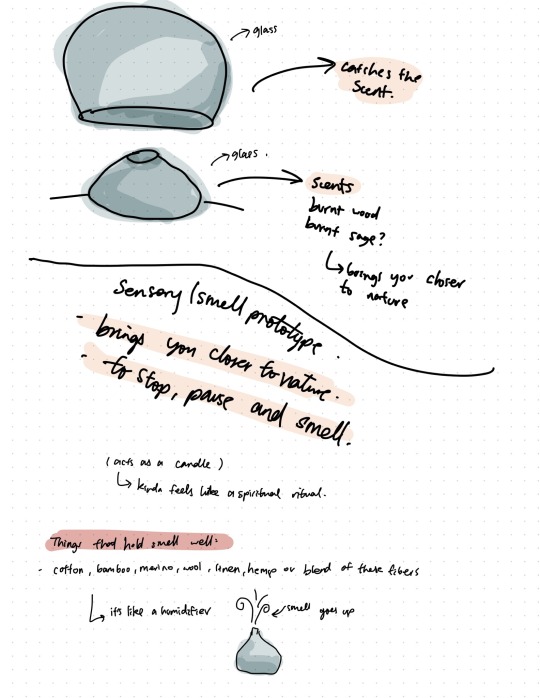 glass
catches the
scent.
glass.
scents
burnt wood
burnt sage?
brings you closer
to nature
Sensory/smell prototype.
- brings you closer to nature.
- to stop, pause and smell.
(acts as a candle)
kinda feels like a spiritual ritual.
Things that hold smell well:
- cotton, bamboo, merino, wool, linen, hemp or blend of these fibers
it's like a humidifier
smell goes up